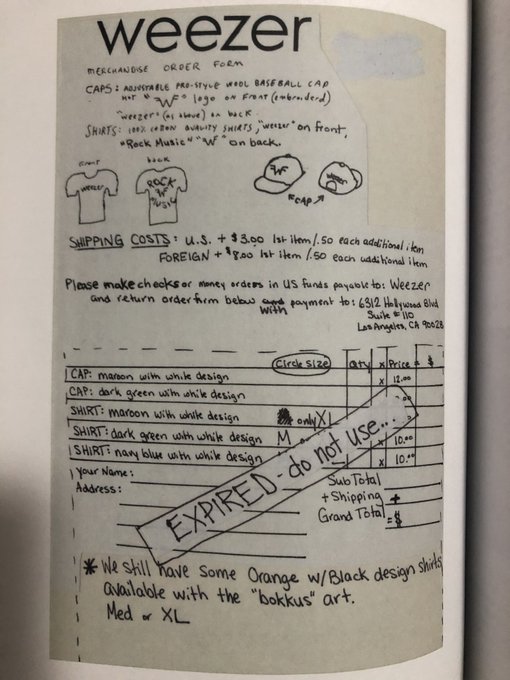 weezer
MERCHANDISE ORDER FORM
CAPS: ADJUSTABLE PRO-STYLE WOOL BASEBALL CAP
HOT "W" LOGO ON FRONT (embroiderd)
"weezer" (as above) on back
SHIRTS: 100% COTTON QUALITY SHIRTS, "weezer" on front,
"Rock Music" "W" on back.
front
back
weezer
ROCK
W
MUSIC
W
weezer
CAP
SHIPPING COSTS: U.S. + $3.00 1st item/.50 each additional item
FOREIGN + $8.00 1st item/.50 each additional item
Please make checks or money orders in US funds payable to: Weezer
and return order form below with payment to: 6312 Hollywood Blvd
Suite #110
Los Angeles, CA 90028
Circle Size Qty x Price = $
CAP: maroon with white design x 12.00
CAP: dark green with white design
SHIRT: maroon with white design only XL
SHIRT: dark green with white design M x 10.00
SHIRT: navy blue with white design x 10.00
Your Name:
Address:
SubTotal
+ Shipping +
Grand Total = $
EXPIRED - do not use...
* We still have some Orange w/Black design shirts
available with the "bokkus" art.
Med or XL